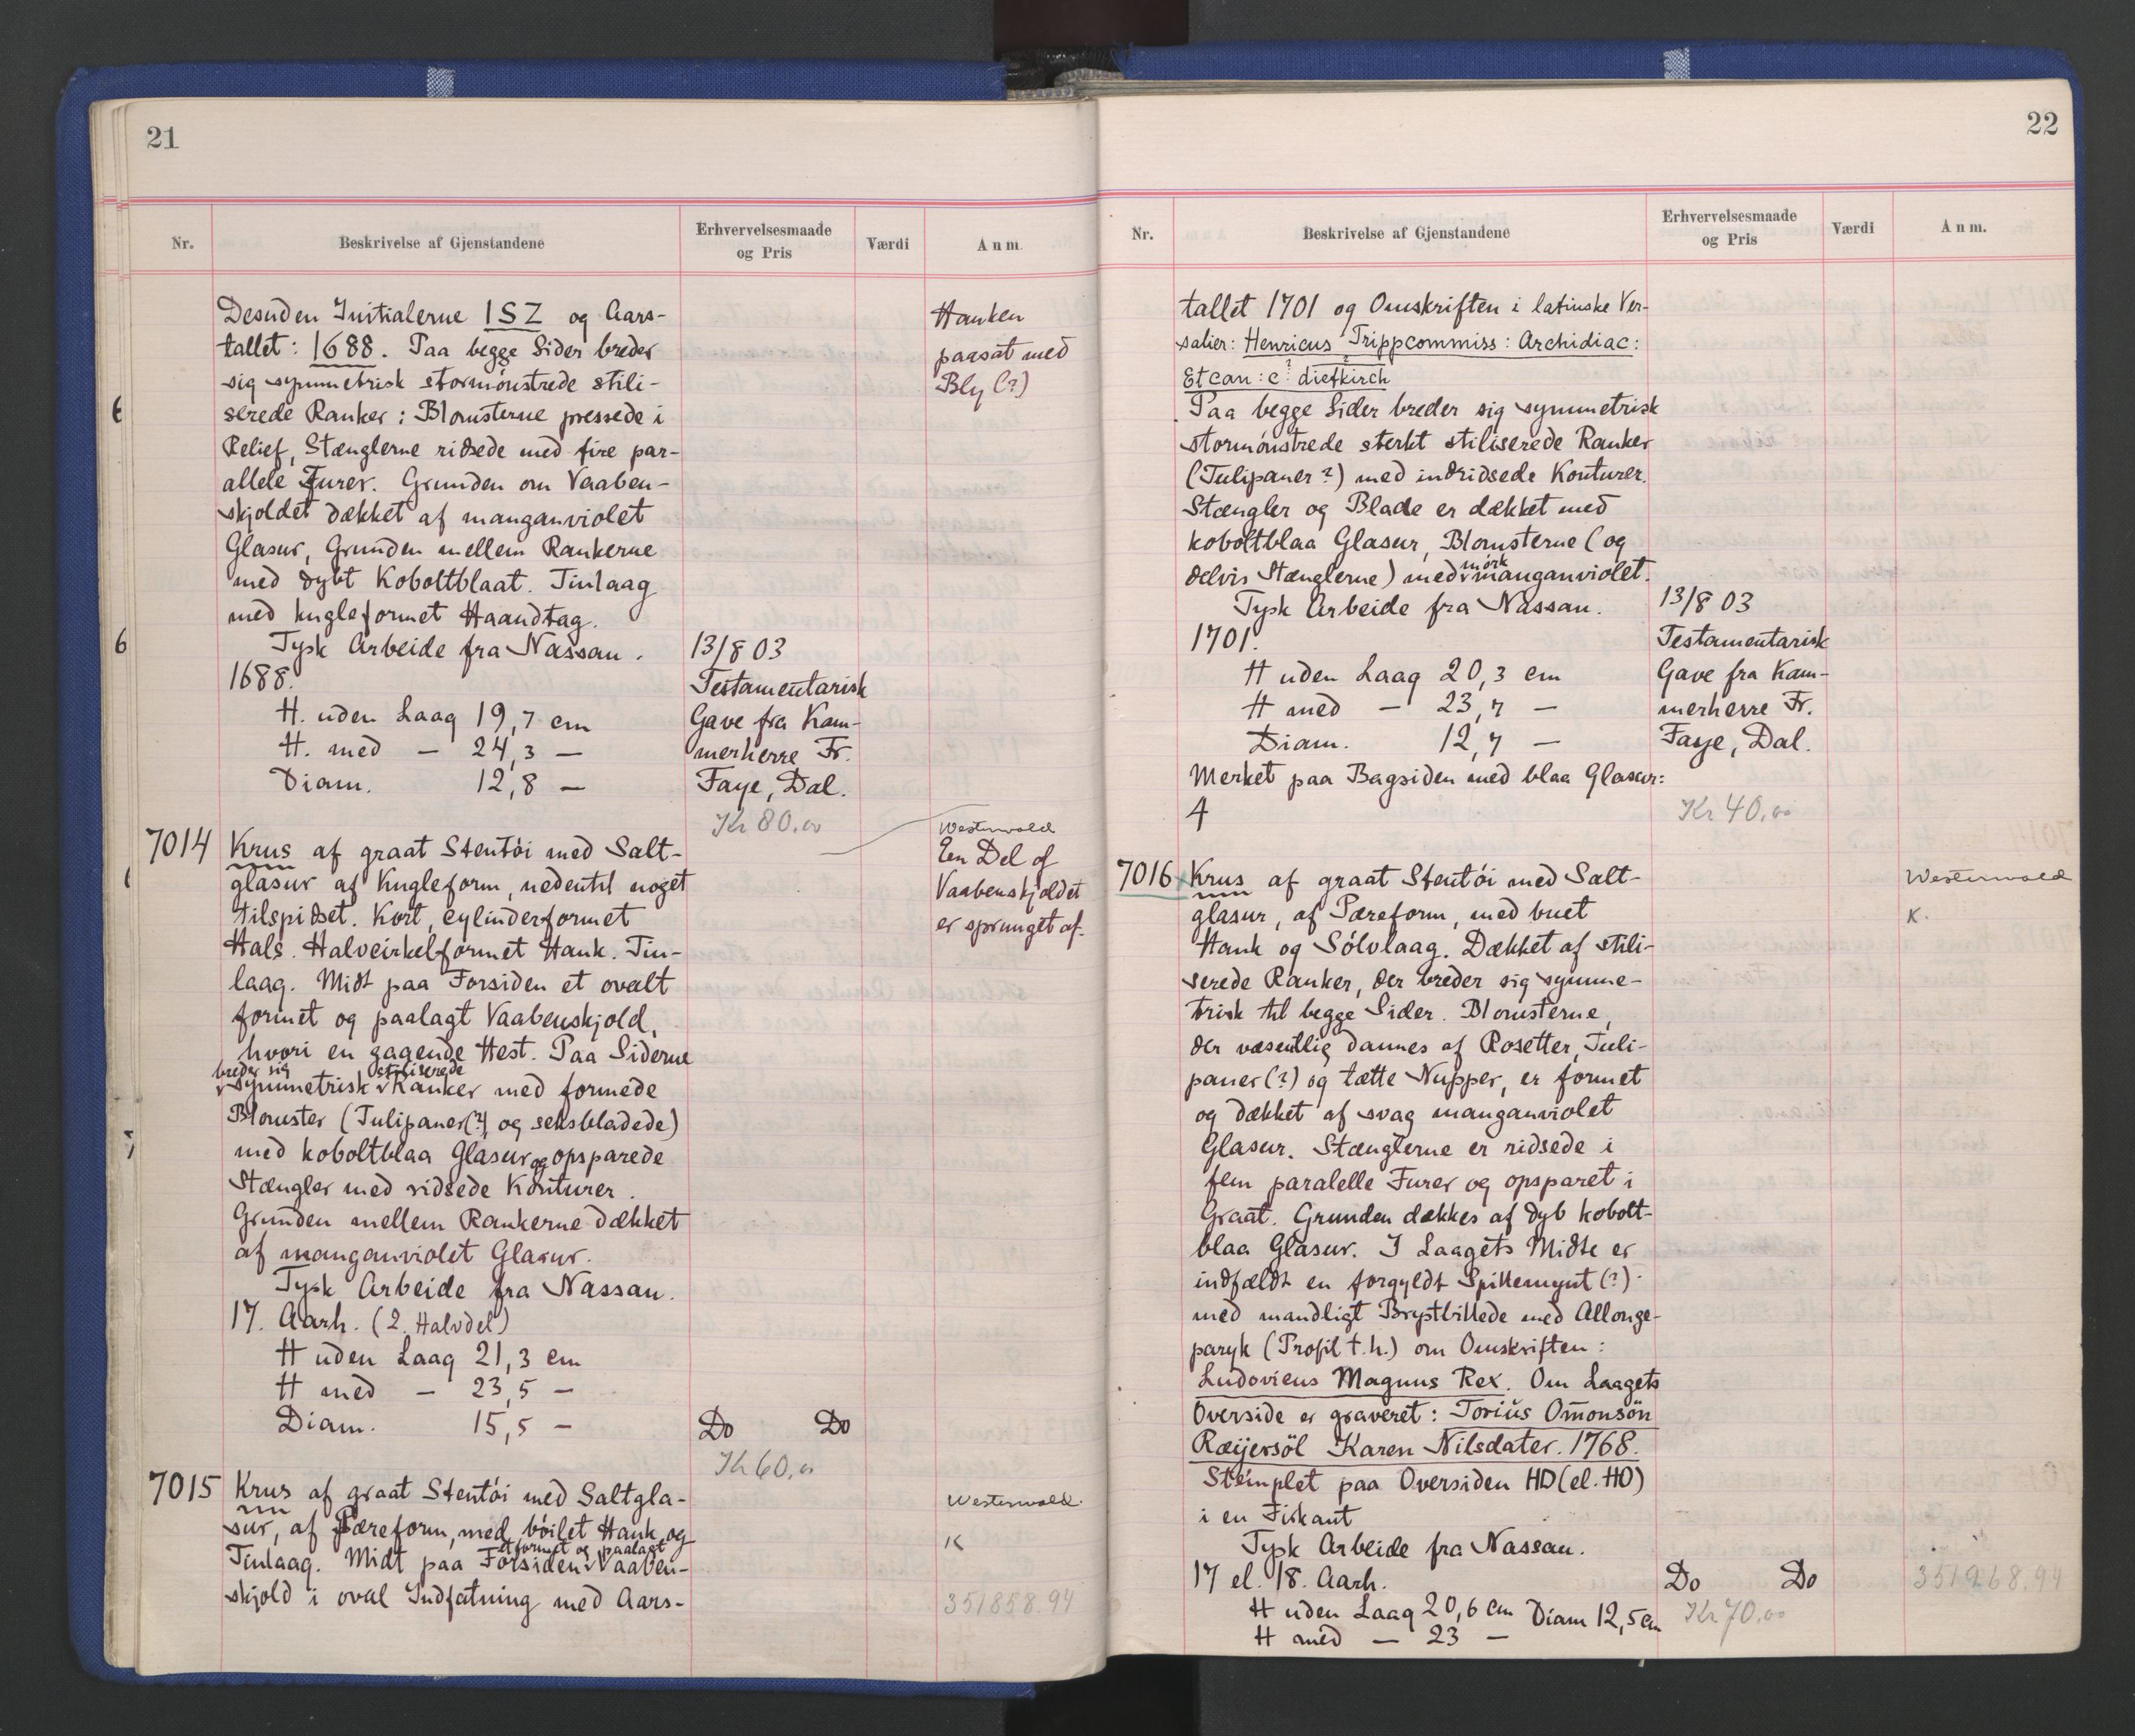 21
Nr.
Beskrivelse af Gjenstandene
Erhvervelsesmaade
og Pris
Værdi
Anm.
Desuden Initialerne ISZ og Aars-
tallet: 1688. Paa begge Sider breder
sig symmetrisk stormønstrede stili-
serede Ranker: Blomsterne pressede i
Relief, Stænglerne ridsede med fire par-
allele Furer. Grunden om Vaaben-
skjoldet dækket af manganviolet
Glasur, Grunden mellem Rankerne
med dybt Koboltblaat. Tinlaag
med kugleformet Haandtag.
Tysk Arbeide fra Nassau.
1688.
H. uden Laag 19,7 cm
H. med – 24,3 –
Diam. 12,8 –
13/8 03
Testamentarisk
Gave fra Kam-
merherre Fr.
Faye, Dal.
Kr 80.00
Hanken
paasat med
Bly (?)
7014
Krus af graat Stentøi med Salt-
glasur af Kugleform, nedentil noget
tilspidset. Kort, cylinderformet
Hals. Halvcirkelformet Hank. Tin-
laag. Midt paa Forsiden et ovalt
formet og paalagt Vaabenskjold,
hvori en gagende Hest. Paa Siderne
breder sig stiliserede
symmetrisk Ranker med formede
Blomster (Tulipaner(?) og seksbladede)
med koboltblaa Glasur og opsparede
Stængler med ridsede Konturer.
Grunden mellem Rankerne dækket
af manganviolet Glasur.
Tysk Arbeide fra Nassau.
17. Aarh. (2. Halvdel)
H uden Laag 21,3 cm
H med – 23,5 –
Diam. 15,5 –
Do Do
Kr 60.00
Westerwald
Een Del af
Vaabenskjoldet
er sprunget af.
7015
Krus af graat Stentøi med Saltgla-
sur, af Pæreform, med bøilet Hank og
et formet og paalagt
Tinlaag. Midt paa Forsiden Vaaben-
skjold i oval Indfatning med Aars-
Westerwald.
K
351858.94
22
Nr.
Beskrivelse af Gjenstandene
Erhvervelsesmaade
og Pris
Værdi
Anm.
tallet 1701 og Omskriften i latinske Ver-
salier: Henricus Trippcommiss: Archidiac:
Et can: c? dietkirch
Paa begge Sider breder sig symmetrisk
stormønstrede sterkt stiliserede Ranker
(Tulipaner?) med indridsede Konturer.
Stængler og Blade er dækket med
koboltblaa Glasur, Blomsterne (og
mørk
delvis Stænglerne) med manganviolet.
Tysk Arbeide fra Nassau.
1701.
H uden Laag 20,3 cm
H med – 23,7 –
Diam. 12,7 –
Merket paa Bagsiden med blaa Glasur:
4
13/8 03
Testamentarisk
Gave fra Kam-
merherre Fr.
Faye, Dal.
Kr 40.00
7016
Krus af graat Stentøi med Salt-
glasur, af Pæreform, med buet
Hank og Sølvlaag. Dækket af stili-
serede Ranker, der breder sig symme-
trisk til begge Sider. Blomsterne,
der væsentlig dannes af Rosetter, Tuli-
paner(?) og tætte Nupper, er formet
og dækket af svag manganviolet
Glasur. Stænglerne er ridsede i
fem paralelle Furer og opsparet i
Graat. Grunden dækkes af dyb kobolt-
blaa Glasur. I Laagets Midte er
indfældt en forgyldt Spillemynt (?)
med mandligt Brystbillede med Allonge-
paryk (Profil t.h.) om Omskriften:
Ludovicus Magnus Rex. Om Laagets
Overside er graveret: Toriüs Omonsön
Ræijersöl Karen Nilsdater. 1768.
Stemplet paa Oversiden HD (el. HO)
i en Firkant
Tysk Arbeide fra Nassau.
17 el. 18. Aarh.
H uden Laag 20,6 cm Diam 12,5 cm
H med – 23 –
Do Do
Kr 70.00
Westerwald
K.
351268.94